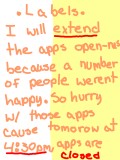 • Labels •
I will extend
the apps open-ness
because a number
of people werent
happy. So hurry
w/ those apps
cause tomorow at
4:30pm apps are
closed